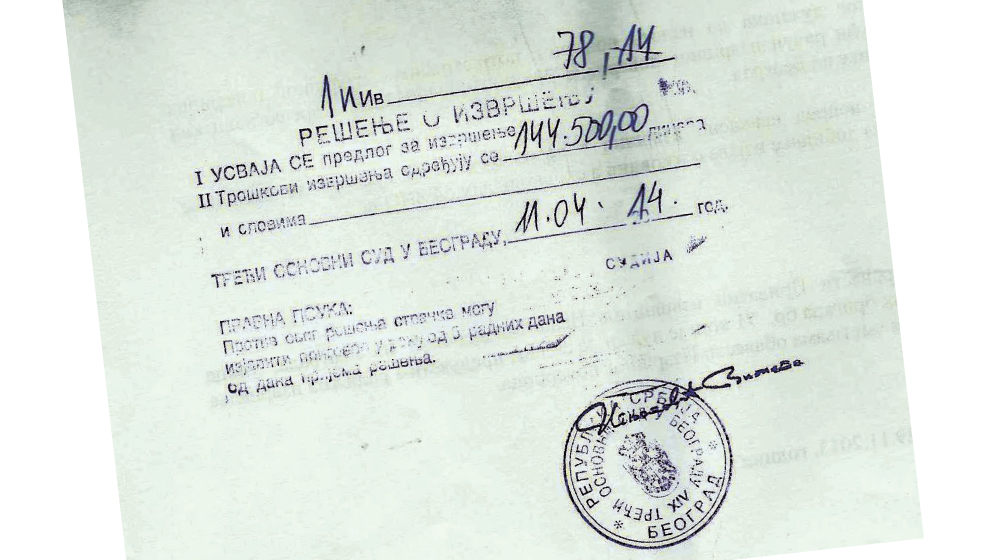 1 Иив 78/14
РЕШЕЊЕ О ИЗВРШЕЊУ
I УСВАЈА СЕ предлог за извршење
II Трошкови извршења одређују се 144.500,00 динара
и словима
ТРЕЋИ ОСНОВНИ СУД У БЕОГРАДУ, 11.04.14. год.
СУДИЈА
ПРАВНА ПОУКА:
Против овог решења странка могу
изјавити приговор у року од 5 радних дана
од дана пријема решења.
РЕПУБЛИКА СРБИЈА
ТРЕЋИ ОСНОВНИ СУД У БЕОГРАДУ XIX
БЕОГРАД